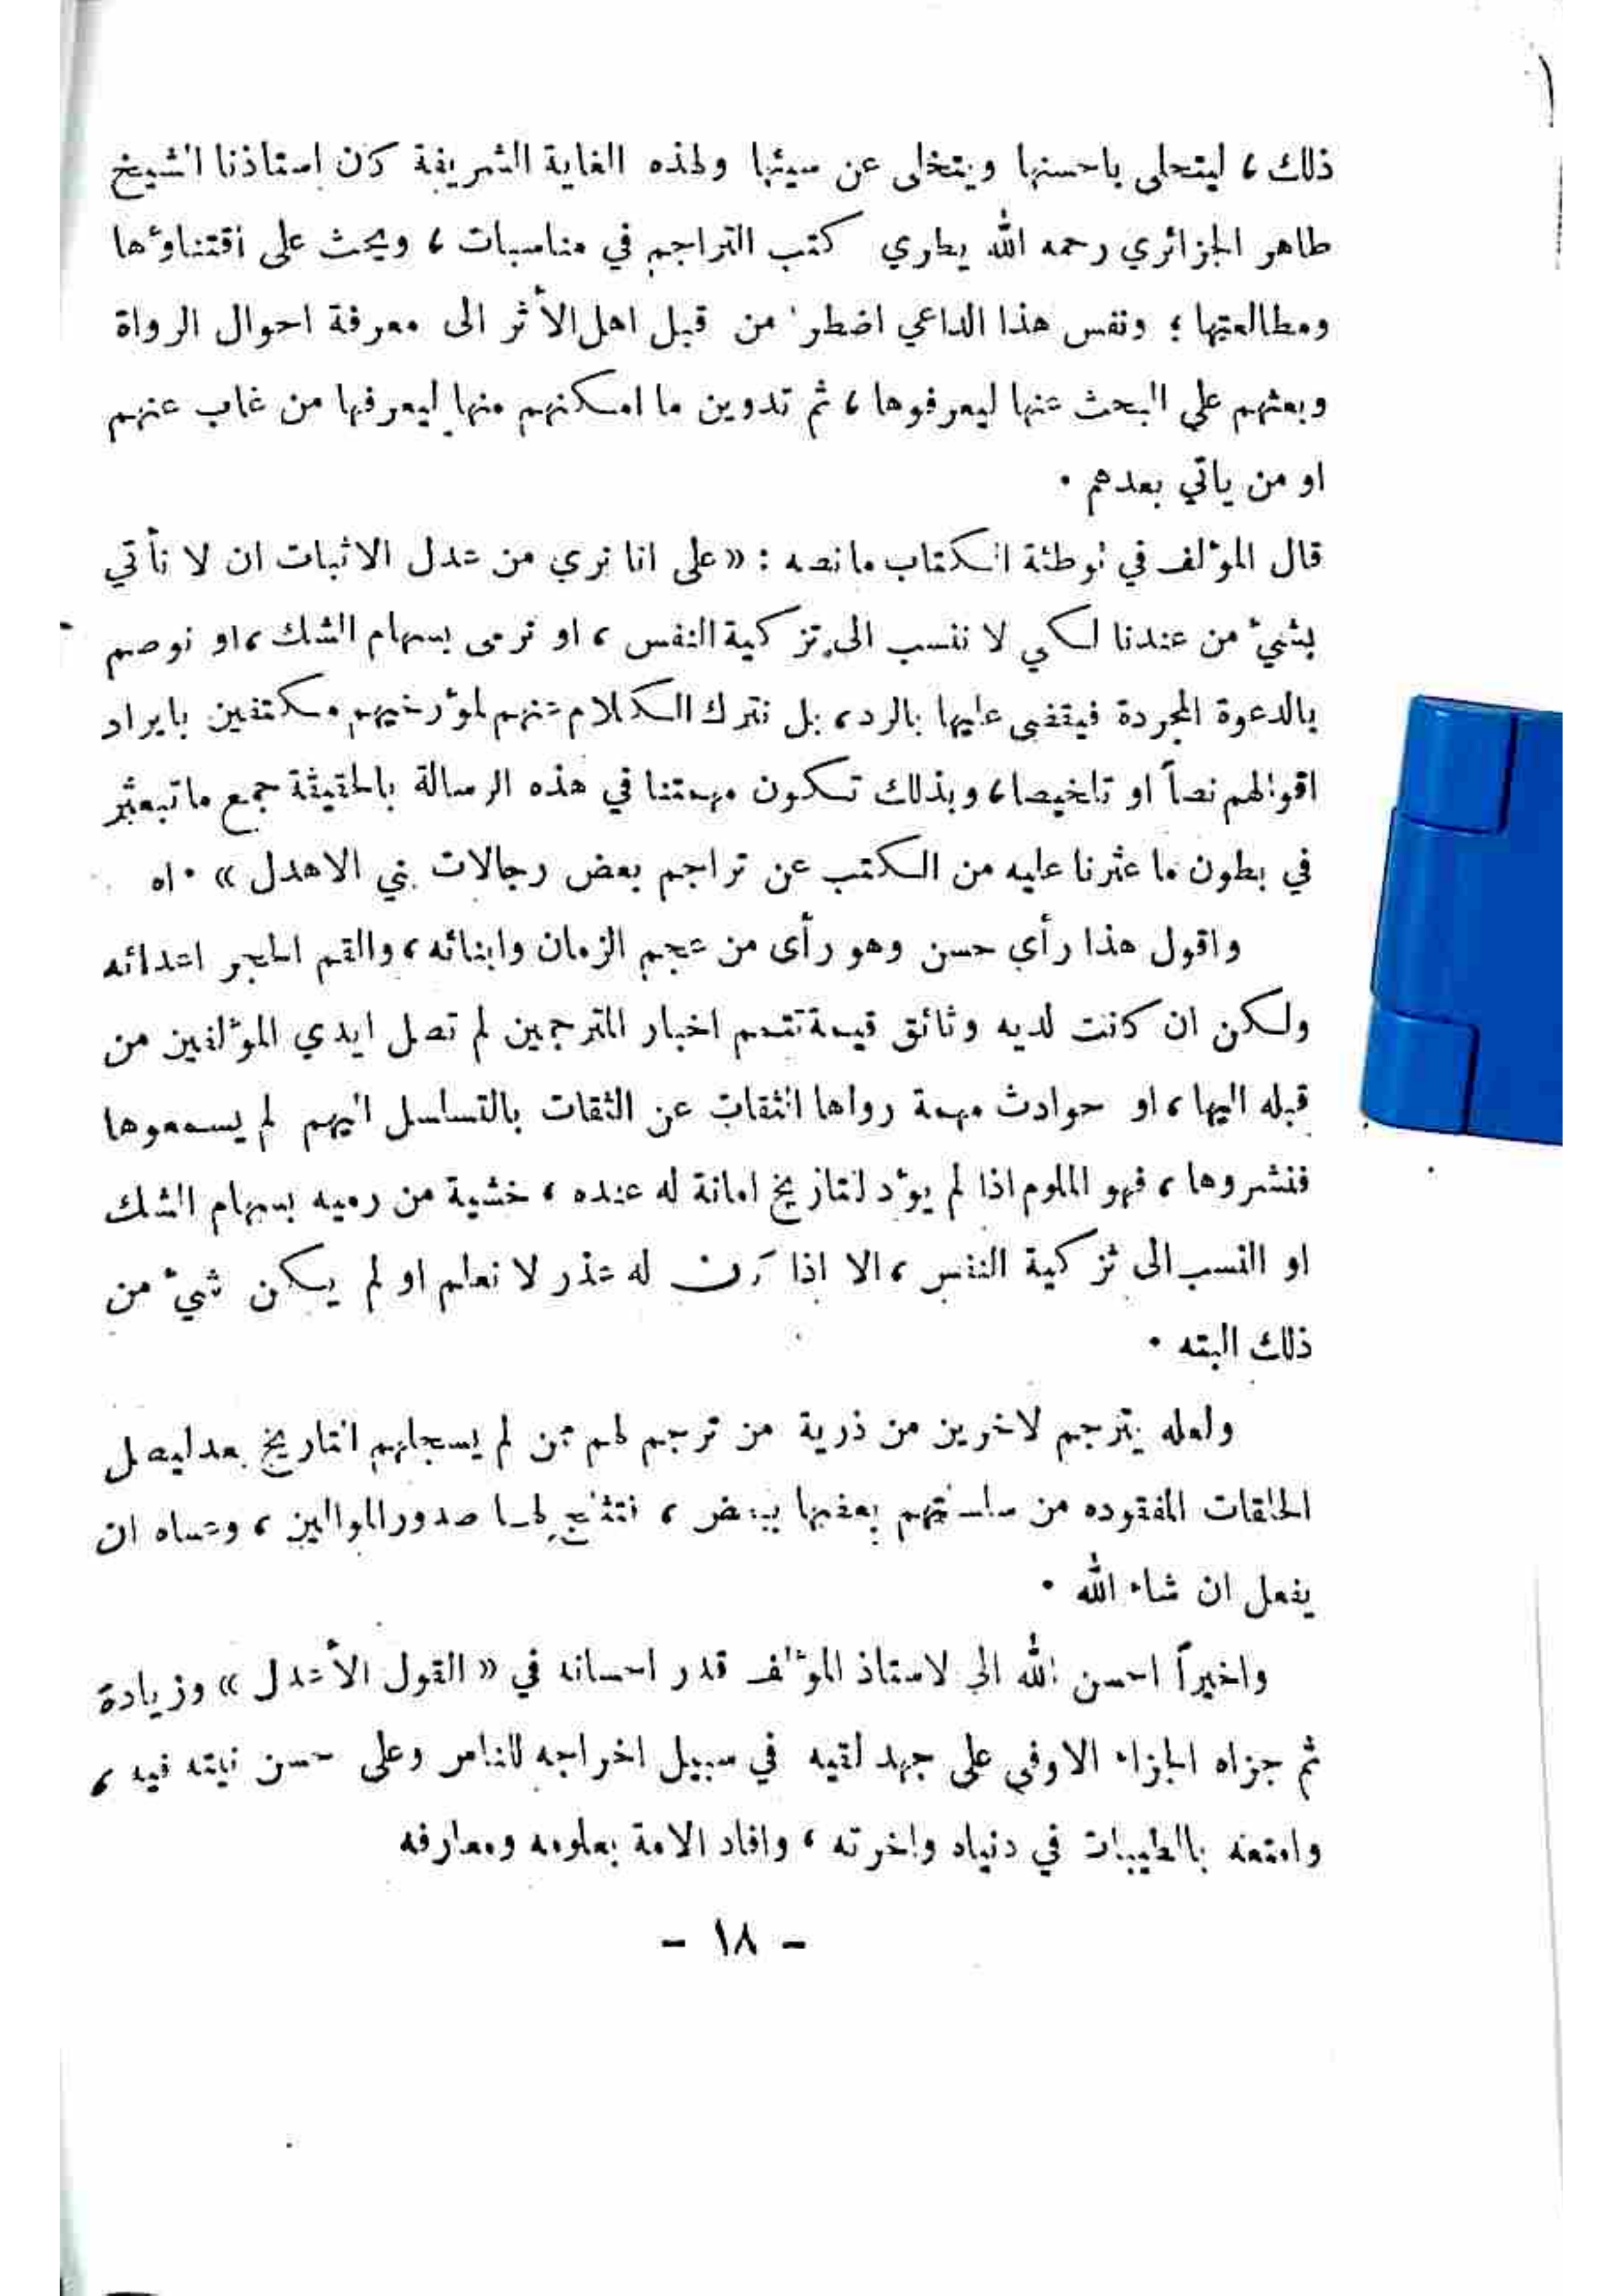 ذلك ، ليتحلى باحسنها ويتخلى عن سيئها ولهذه الغاية الشريفة كان استاذنا الشيخ
طاهر الجزائري رحمه الله يطري كتب التراجم في مناسبات ، ويحث على اقتناؤها
ومطالعتها ؛ ونفس هذا الداعي اضطر من قبل اهل الأثر الى معرفة احوال الرواة
وبعثهم على البحث عنها ليعرفوها ، ثم تدوين ما امكنهم منها ليعرفها من غاب عنهم
او من ياتي بعدهم .
قال المؤلف في توطئة الكتاب ما نصه : « على انا نرى من عدل الاثبات ان لا نأتي
بشيء من عندنا لكي لا ننسب الى تزكية النفس ، او نرمى بسهام الشك ، او نوصم
بالدعوة المجردة فيقضى عليها بالرد ، بل نترك الكلام عنهم لمؤرخيهم مكتفين بايراد
اقوالهم نصاً او تلخيصا ، وبذلك تكون مهمتنا في هذه الرسالة بالحقيقة جمع ما تبعثر
في بطون ما عثرنا عليه من الكتب عن تراجم بعض رجالات بني الاهدل » . اه
واقول هذا رأي حسن وهو رأى من عجم الزمان وابنائه ، والقم الحجر اعدائه
ولكن ان كانت لديه وثائق قيمة تتمم اخبار المترجمين لم تصل ايدي المؤلفين من
قبله اليها ، او حوادث مهمة رواها الثقات عن الثقات بالتسلسل اليهم لم يسمعوها
فنشروها ، فهو الملوم اذا لم يؤد لتاريخ امانة له عنده ، خشية من رميه بسهام الشك
او النسب الى تزكية النفس ، الا اذا كان له عذر لا نعلم او لم يكن شيء من
ذلك البته .
ولعله يترجم لاخرين من ذرية من ترجم لهم ممن لم يسجلهم التاريخ بعد ليصل
الحلقات المفقوده من سلسلتهم بعضها ببعض ، فتثلج لها صدور الموالين ، وعساه ان
يفعل ان شاء الله .
واخيراً احسن الله الى لاستاذ المؤلف قدر احسانه في « القول الأعدل » وزيادة
ثم جزاه الجزاء الاوفى على جهد لقيه في سبيل اخراجه للناس وعلى حسن نيته فيه ،
وامتعه بالطيبات في دنياه واخرته ، وافاد الامة بعلومه ومعارفه
- ١٨ -